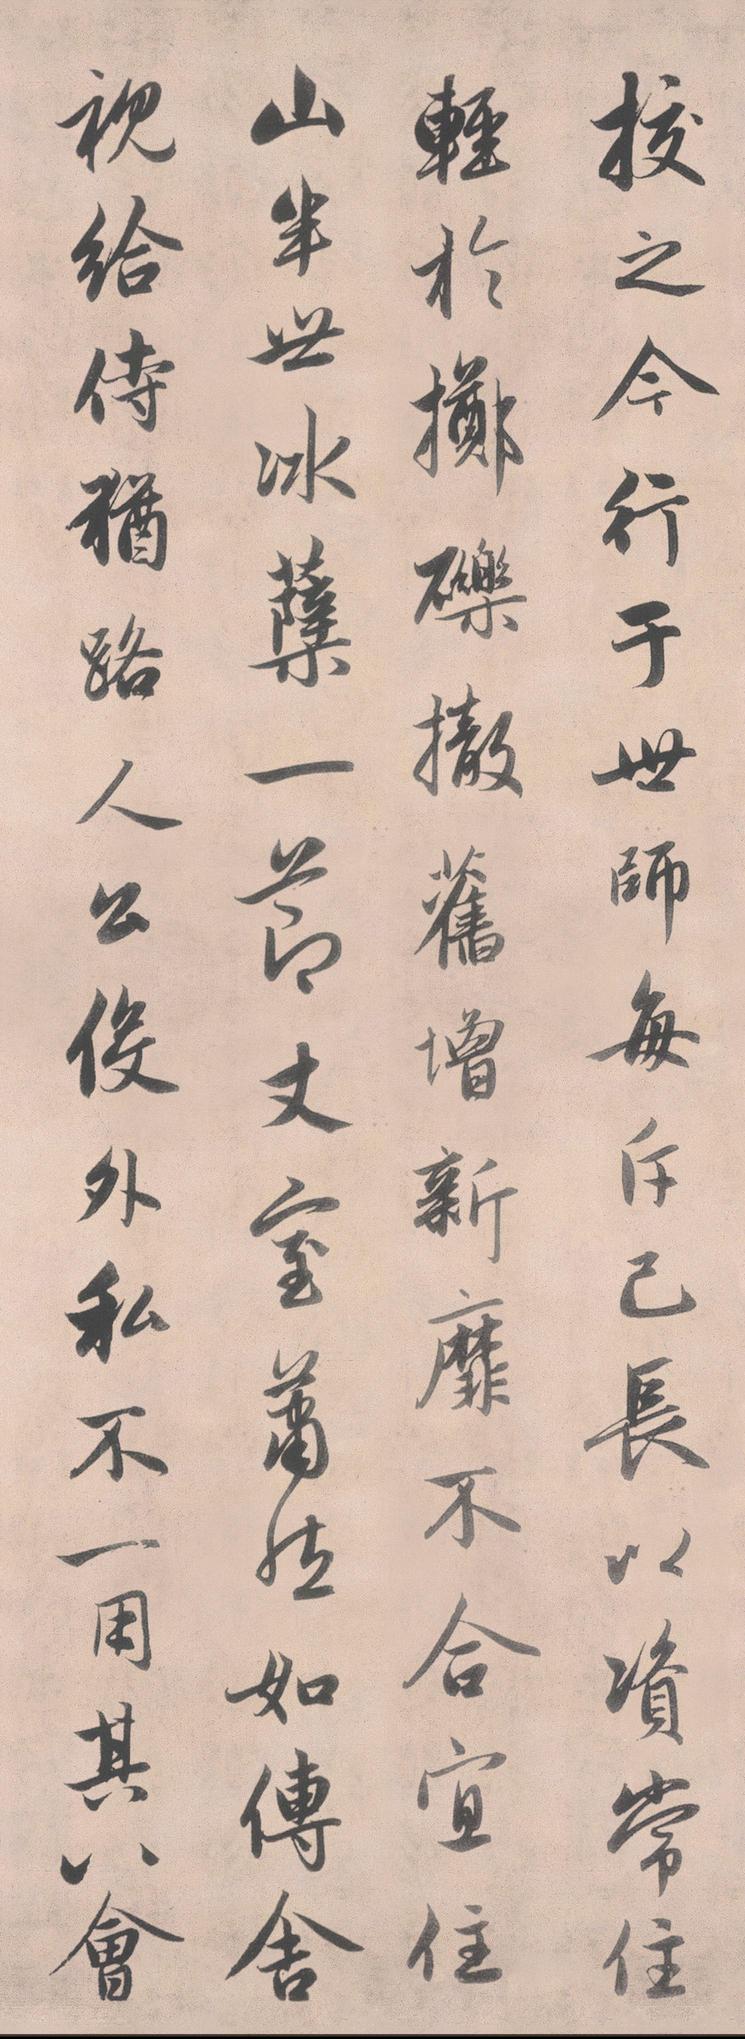 挍之今行于世師每斥己長以資常住
輕於擲礫撤舊增新靡不合宜住
山半世冰蘖一節丈室蕭然如傳舍
視給侍猶路人公役外私不一用其八會